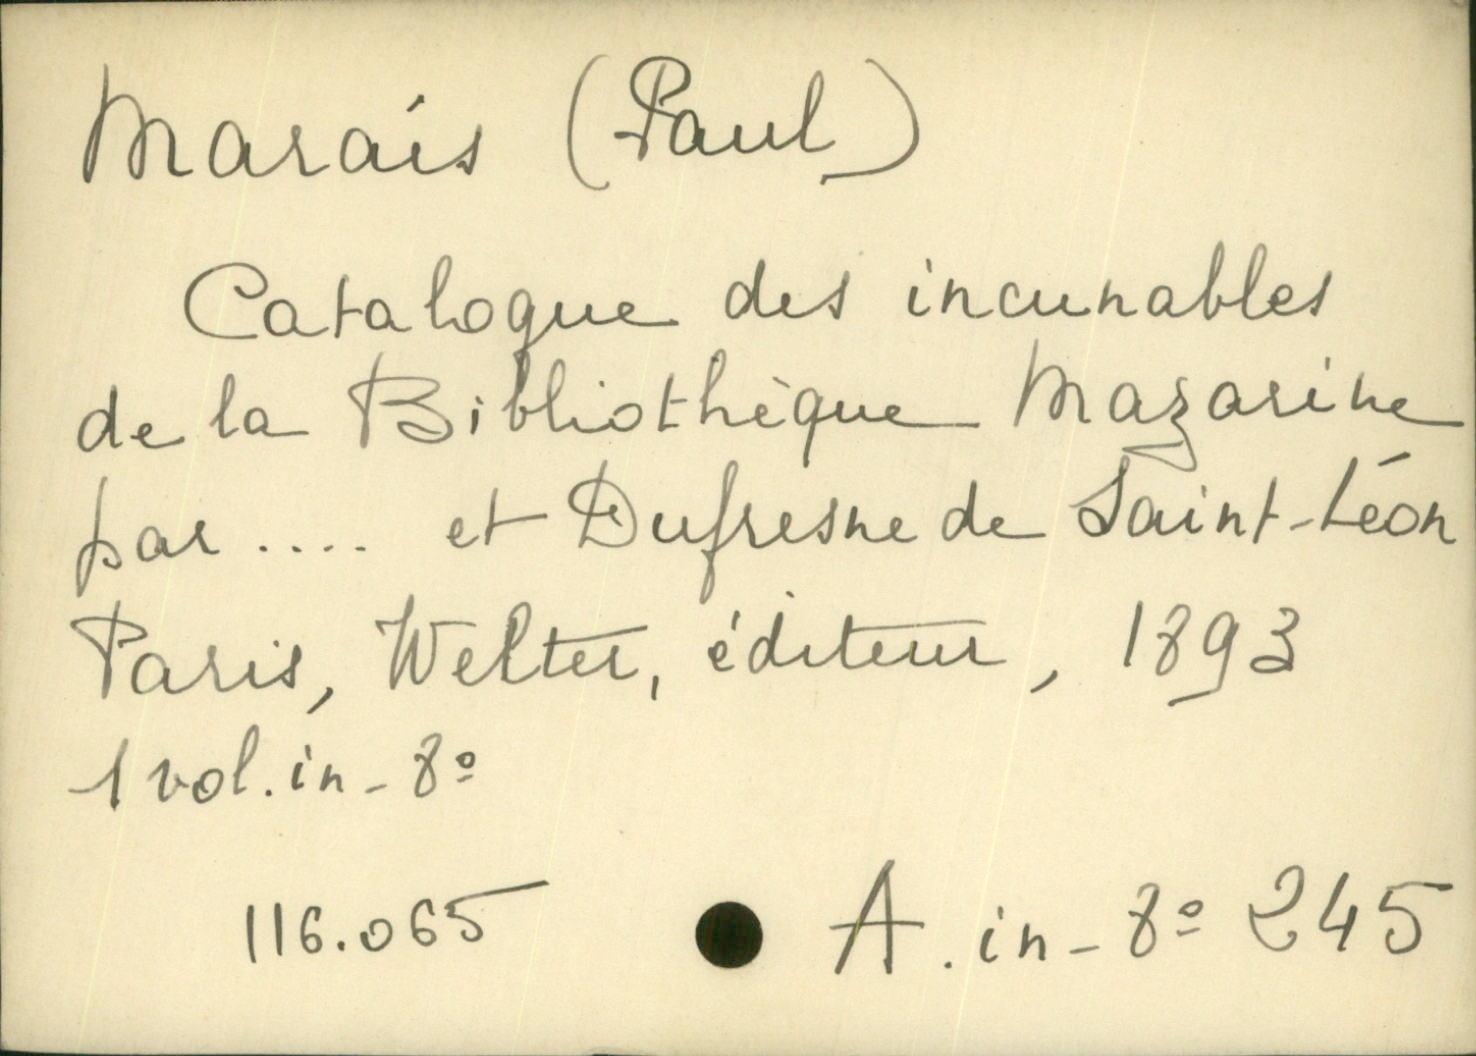 Marais (Paul)
Catalogue des incunables
de la Bibliothèque Mazarine
par .... et Dufresne de Saint-Léon
Paris, Welter, éditeur, 1893
1 vol. in-8º
116.065 A. in-8º 245